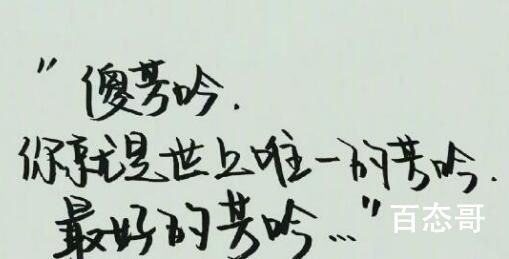 "傻芳吟.
你就是世上唯一的芳吟.
最好的芳吟..."
百态哥